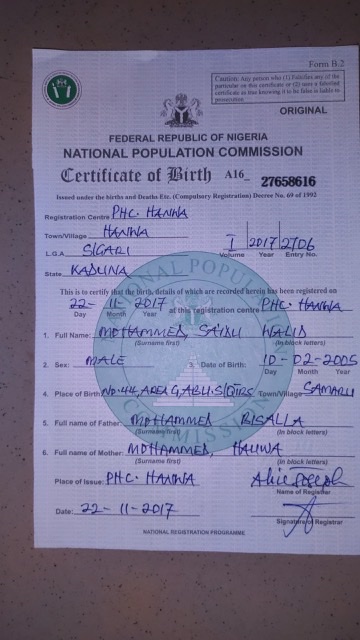 Form B.2
Caution: Any person who (1) Falsifies any of the
particular on this certificate or (2) uses a falsified
certificate as true knowing it to be false is liable to
prosecution
ORIGINAL
FEDERAL REPUBLIC OF NIGERIA
NATIONAL POPULATION COMMISSION
Certificate of Birth A16_ 27658616
Issued under the births and Deaths Etc. (Compulsory Registration) Decree No. 69 of 1992
Registration Centre PHC. HANWA
Town/Village HANWA
L.G.A S/GARI I 2017 2706
Volume Year Entry No.
State KADUNA
This is to certify that the birth, details of which are recorded herein has been registered on
22- 11- 2017 at this registration centre PHC- HANWA
Day Month Year
1. Full Name: MOHAMMED, SA'IDU WALID
(Surname first) (In block letters)
2. Sex: MALE 3. Date of Birth: 10- 02-2005
Day Month Year
4. Place of Birth: NO.44, AREA G, ABU, S/QTRS Town/Village SAMARU
5. Full name of Father: MOHAMMED BISALLA
(Surname first) (In block letters)
6. Full name of Mother: MOHAMMED, HAUWA
(Surname first) (In block letters)
Place of Issue: PHC. HANWA Alice Joseph
Name of Registrar
Date: 22- 11-2017
Signature of Registrar
NATIONAL REGISTRATION PROGRAMME
NATIONAL POPULATION
COMMISSION